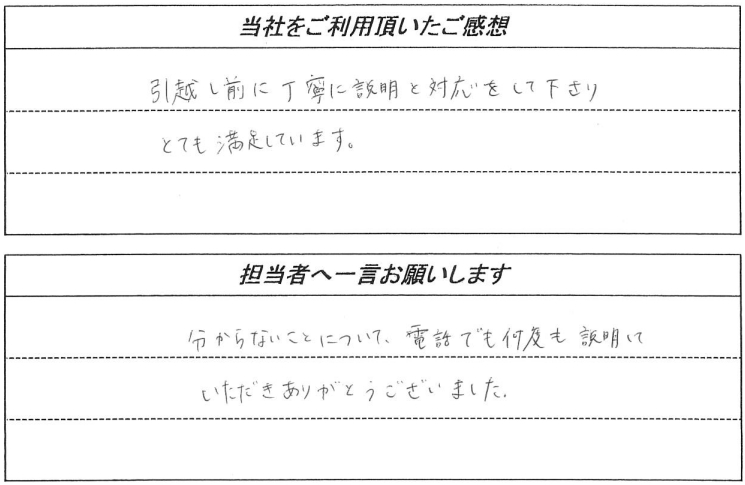 当社をご利用頂いたご感想
引越し前に丁寧に説明と対応をして下さり
とても満足しています。
担当者へ一言お願いします
分からないことについて、電話でも何度も説明して
いただきありがとうございました。